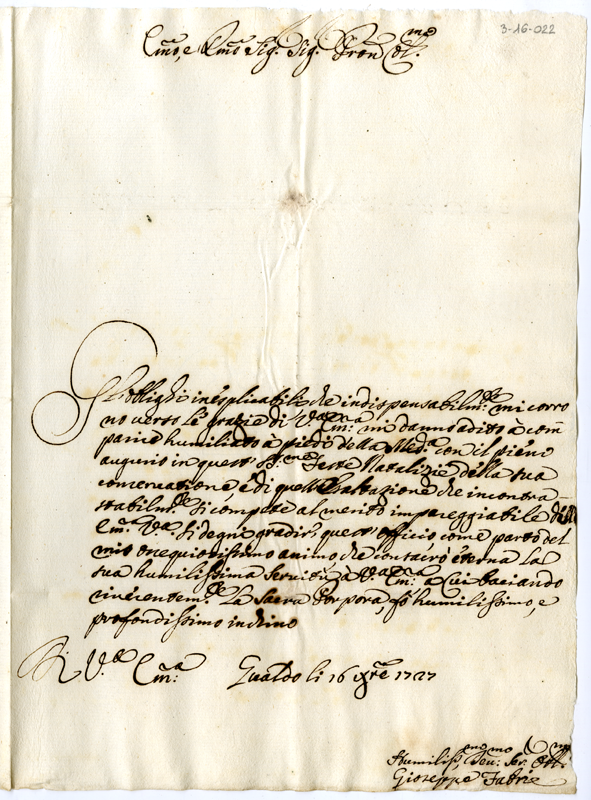 3-16-022
Em̃o, e Rm̃o Sig. Sig. Pron Col.mo
Gl'oblighi inesplicabili che indispensabilm:te mi corro
no verso le grazie di V.a Em:a mi danno adito à com
parire humiliato à piedi della Med.a con il pieno
augurio in queste S.me Feste Natalizie della sua
conservatione è di quell'Esaltazione che incontra-
stabilm:te si compete al merito impareggiabile dell'
Em:a V.a Si degni gradir quest'officio come parto del
mio ossequiosissimo animo che consacrò eterna la
sua humilissima servitù à V.a Em:a a cui baciando
riverentem:te la Sacra Porpora, fò humilissimo, e
profondissimo inchino
Di V.a Em:a Gualdo li 16 Xbre 1727
Humiliss.mo Seu:mo Ser. Obb.mo
Gioseppe Fabrie